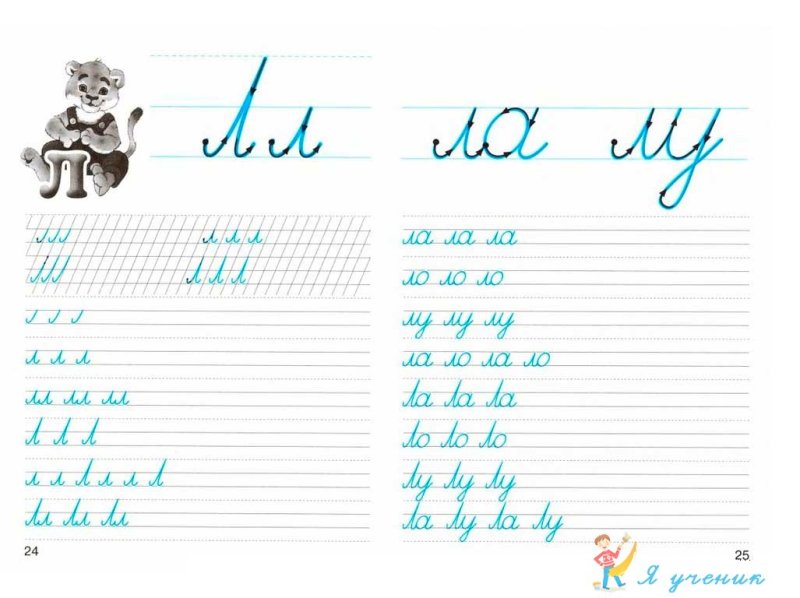 Л
Л л
л л л
Л Л Л
л л л
лл лл лл
Л Л Л
л л Л л л Л
Лл Лл Лл
24
ла лу
ла ла ла
ло ло ло
лу лу лу
ла ло ла ло
Ла Ла Ла
Ло Ло Ло
Лу Лу Лу
Ла Лу Ла Лу
25
Я ученик